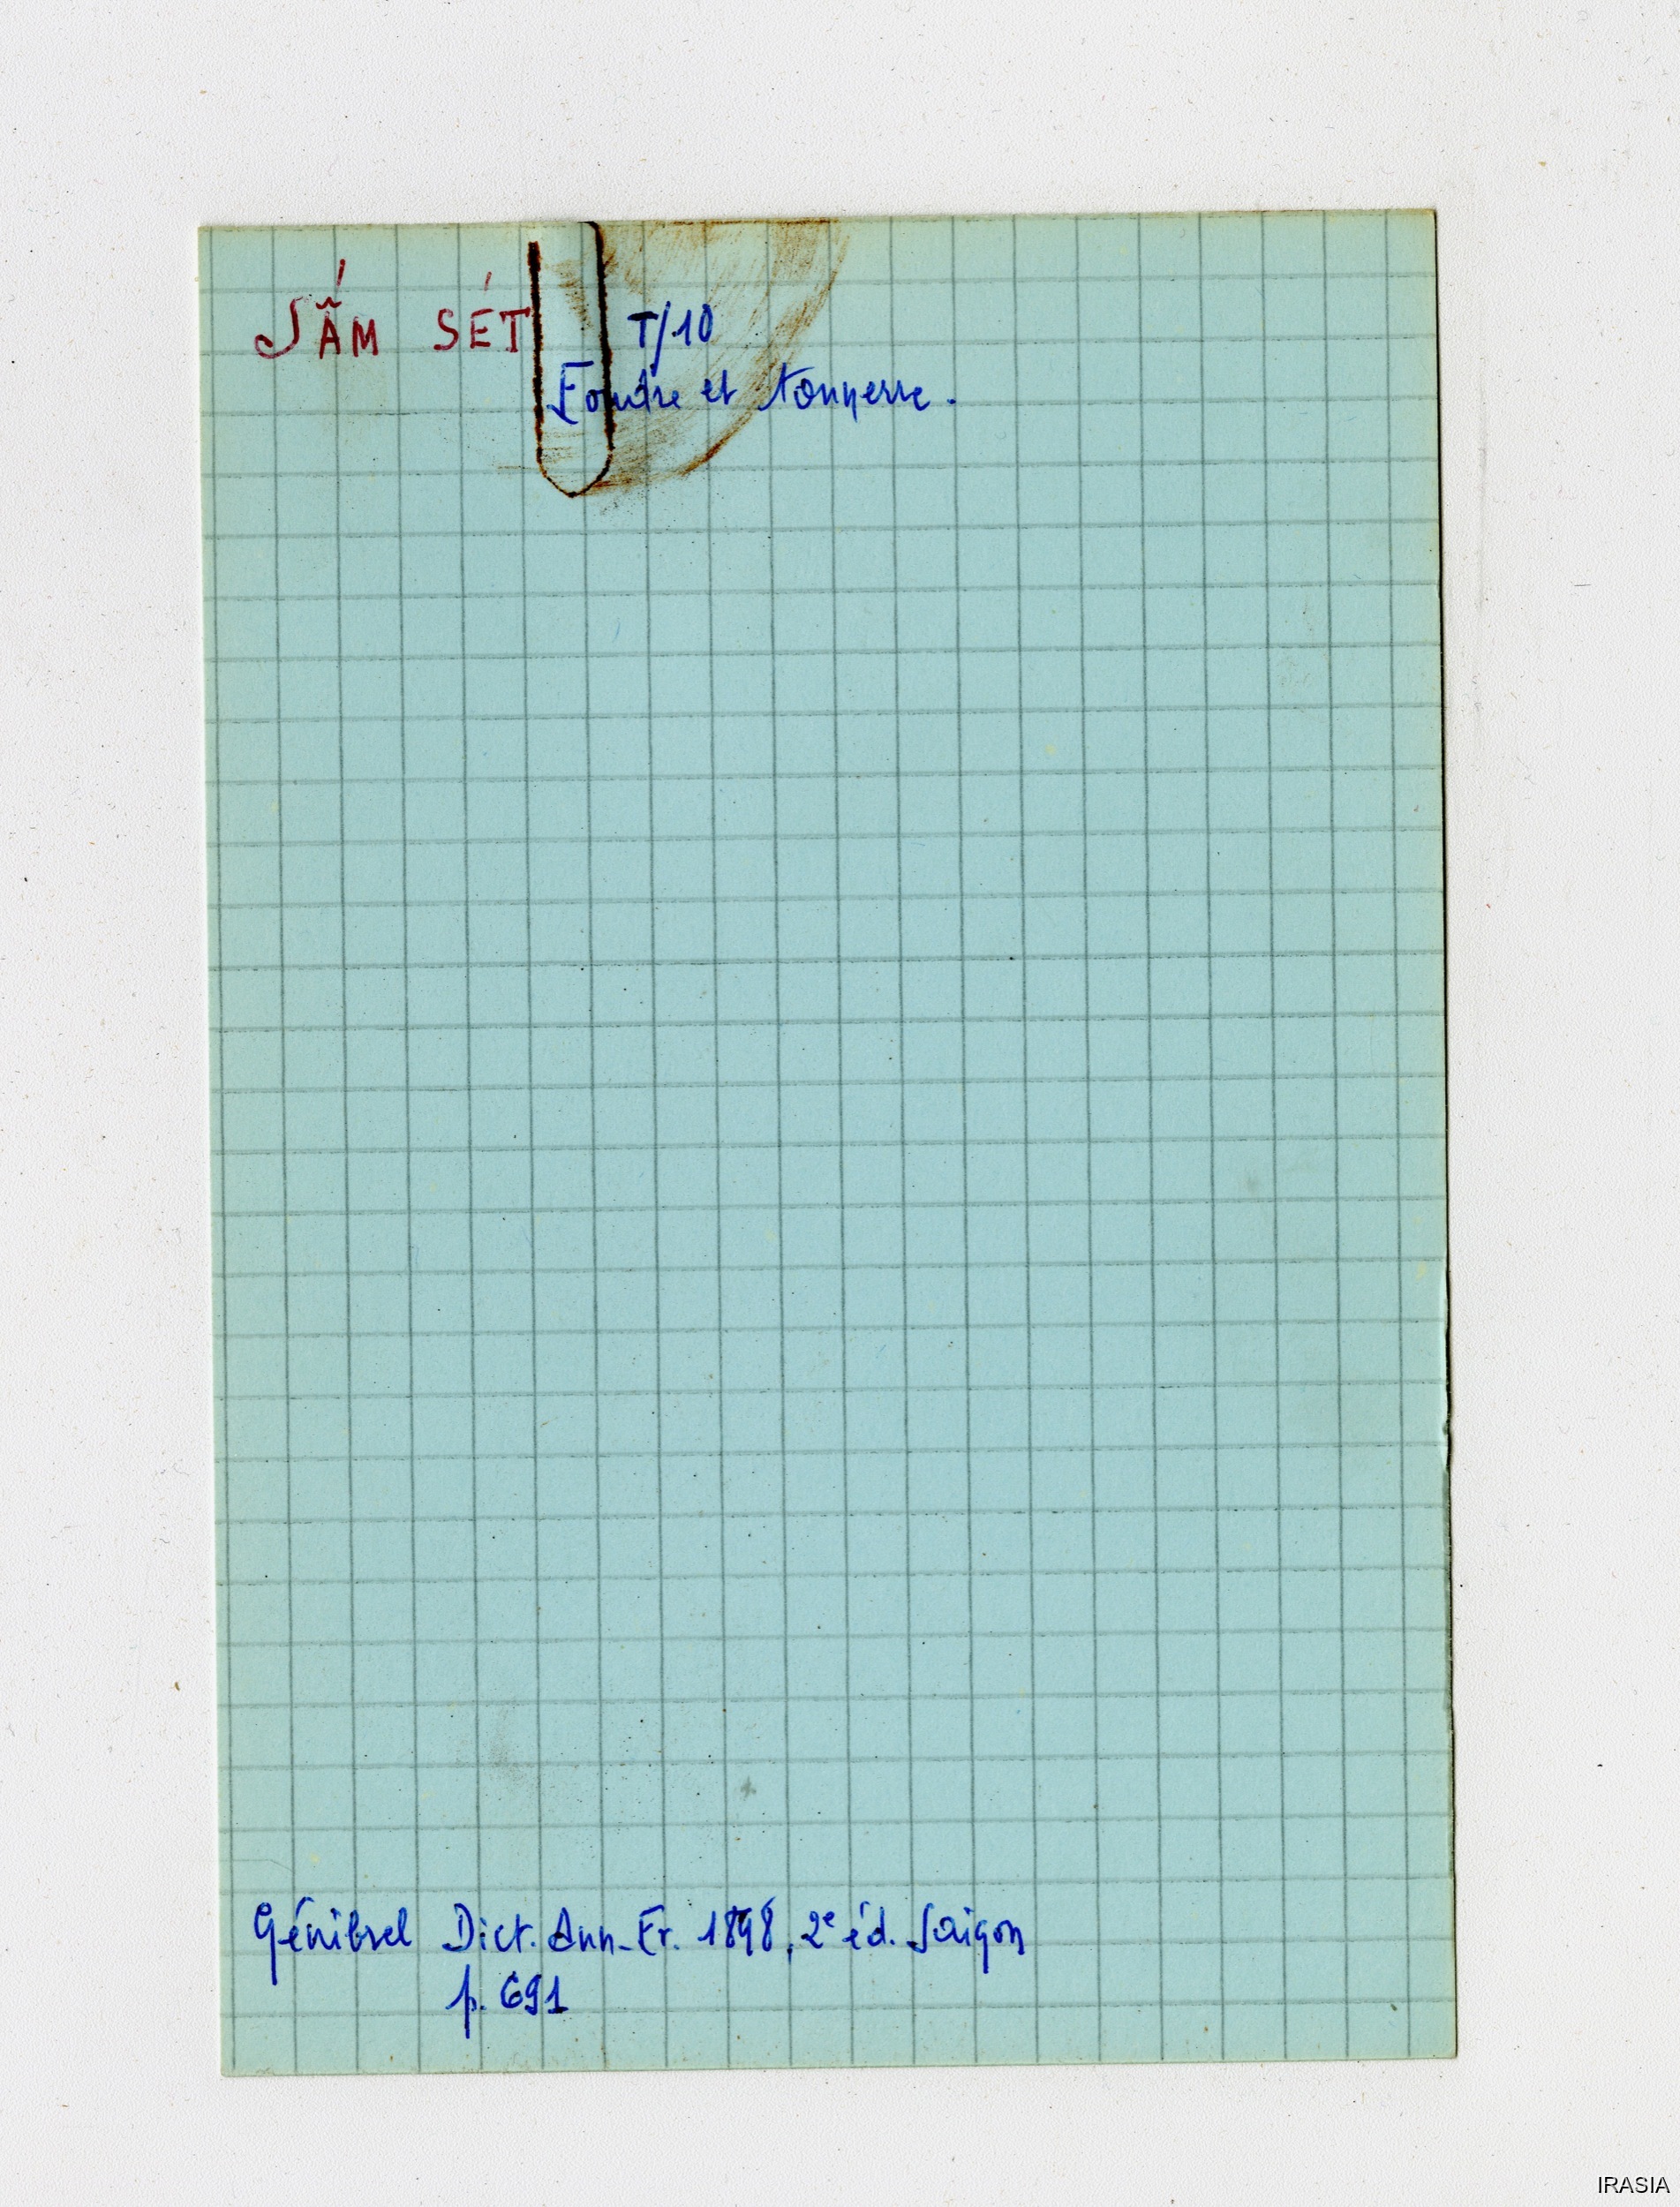 SẤM SÉT T/10
Foudre et tonnerre.
Génibrel Dict. Ann-Fr. 1898, 2e éd. Saigon
p. 691
IRASIA